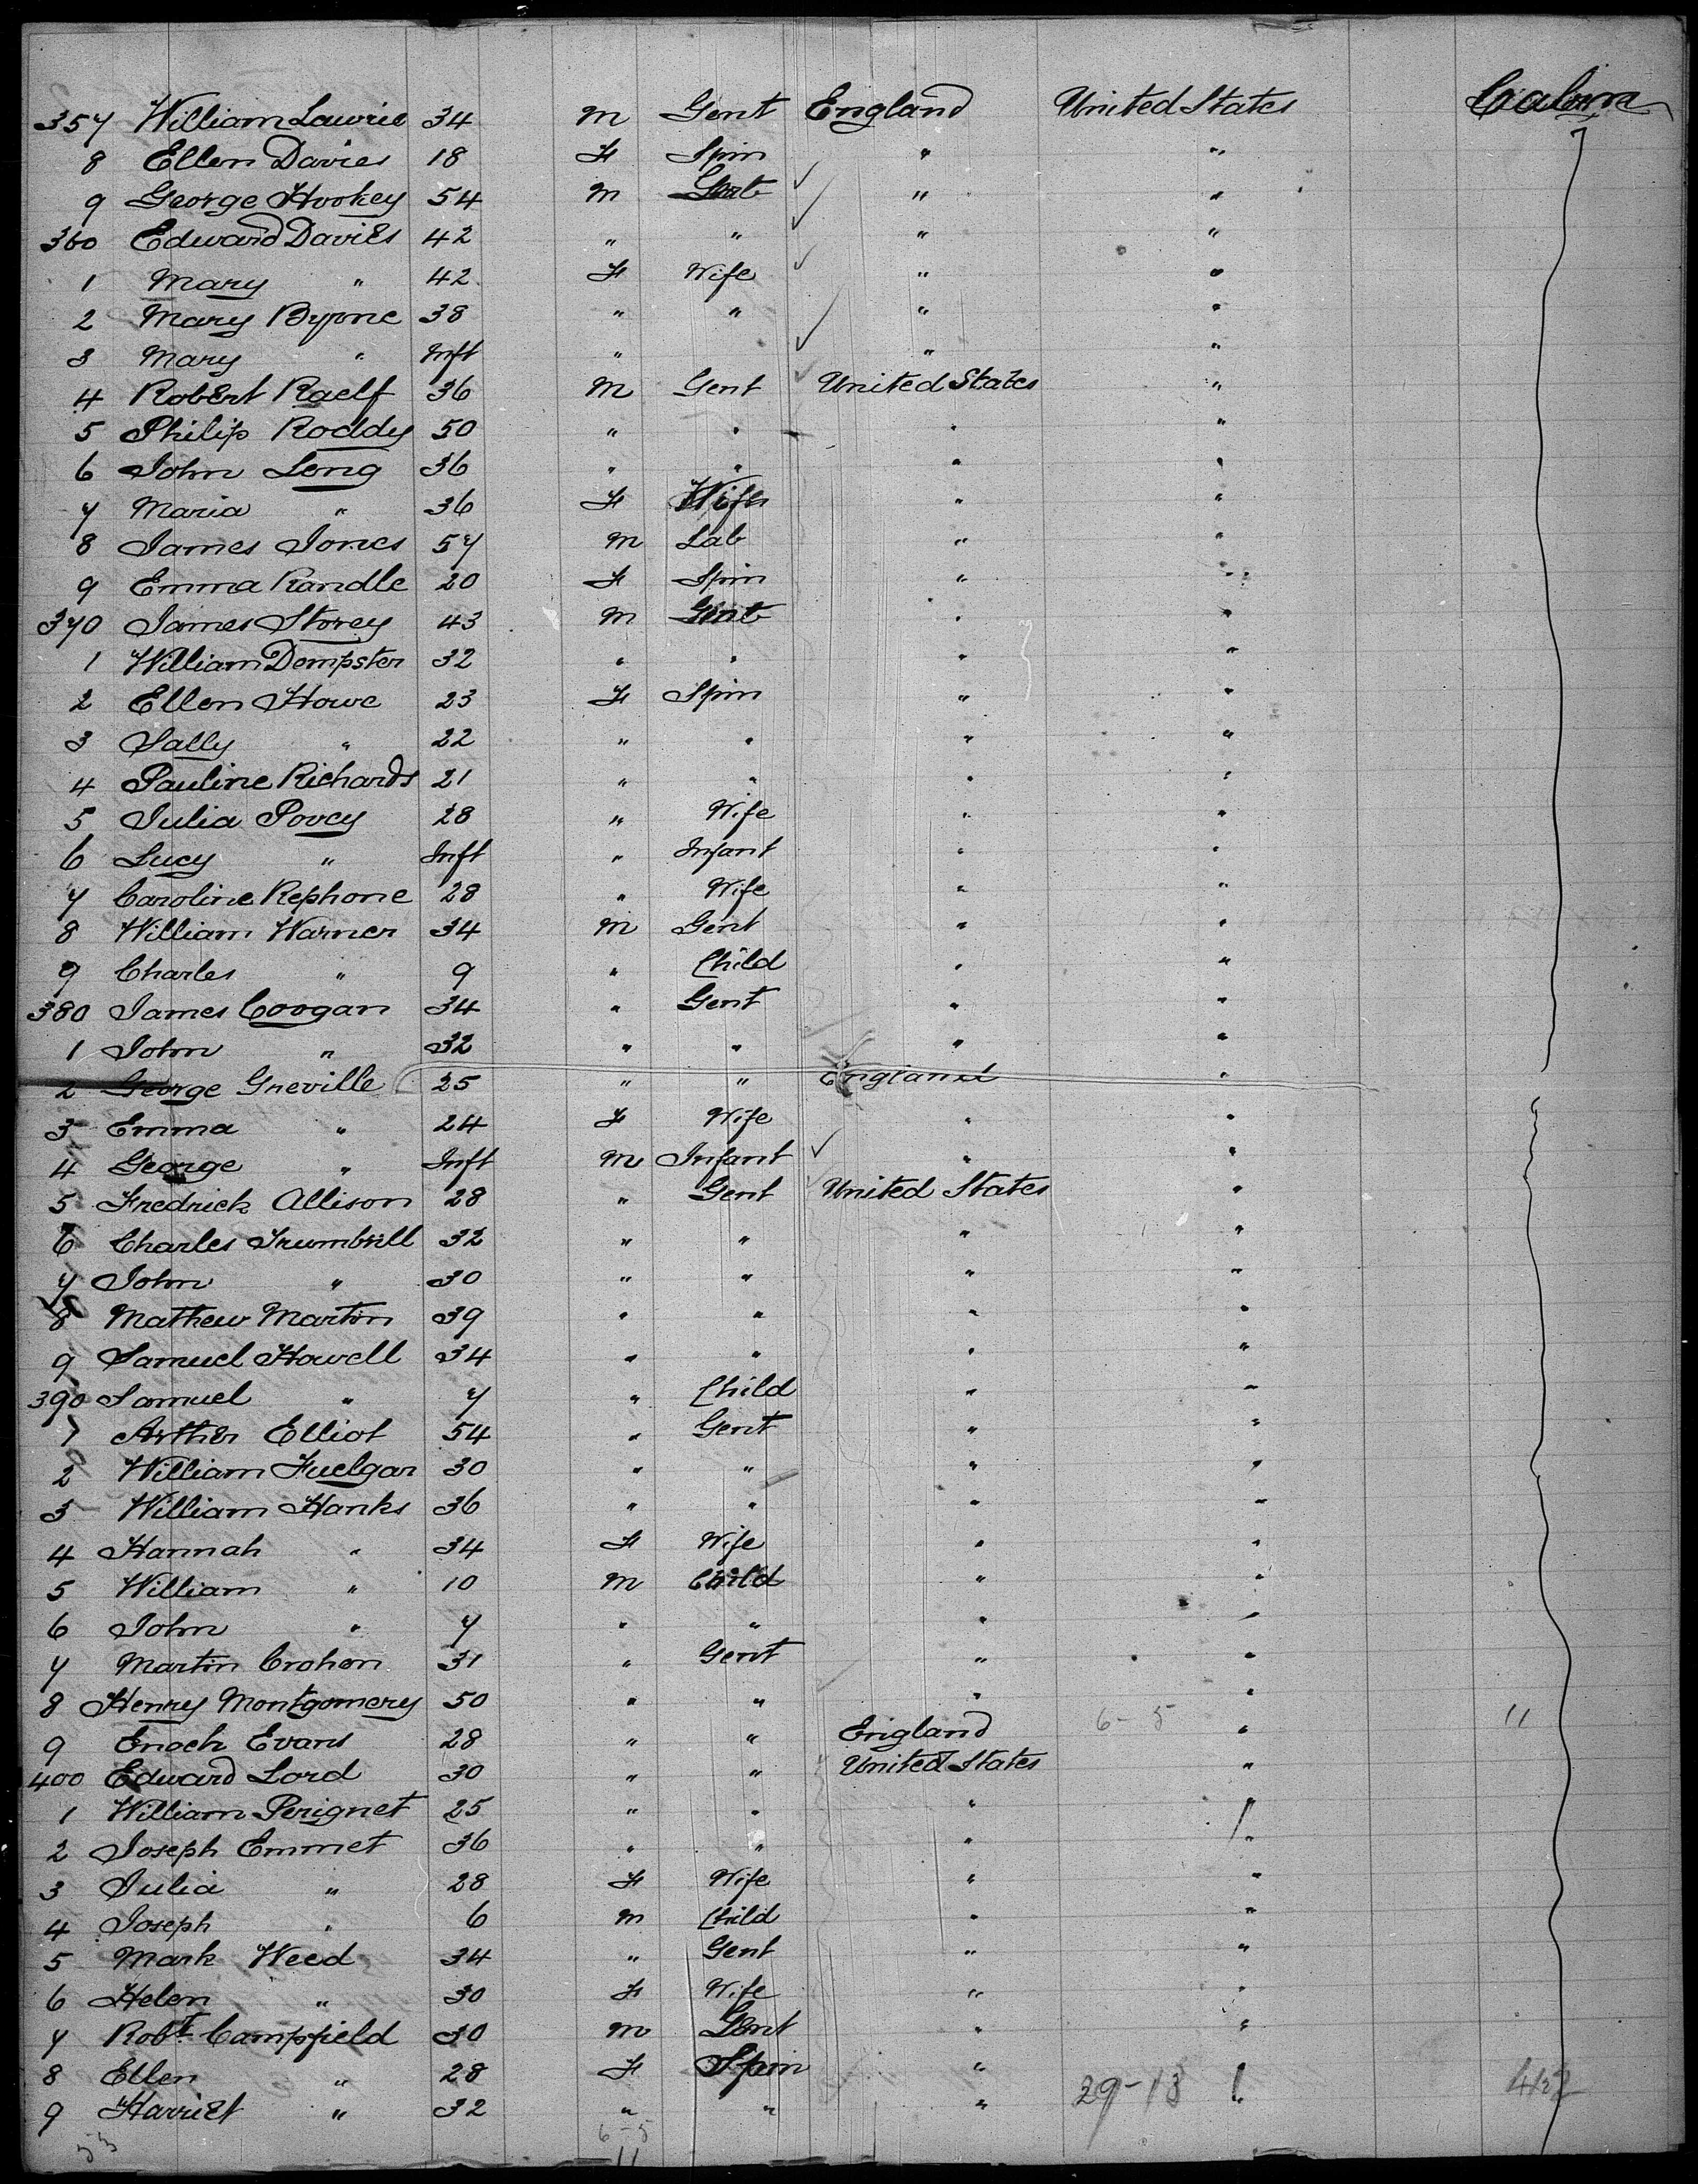 357 William Lawrie 34 M Gent England United States Cabin
8 Ellen Davies 18 F Spin " "
9 George Hookey 54 M Gent " "
360 Edward Davies 42 " " " "
1 Mary " 42 F Wife " "
2 Mary Byrne 38 " " " "
3 Mary " Inft " " "
4 Robert Raelf 36 M Gent United States "
5 Philip Roddy 50 " " " "
6 John Long 36 " " " "
7 Maria " 36 F Wife " "
8 James Jones 57 M Lab " "
9 Emma Randle 20 F Spin " "
370 James Storey 43 M Gent " "
1 William Dempster 32 " " " "
2 Ellen Howe 23 F Spin " "
3 Sally " 22 " " " "
4 Pauline Richards 21 " " " "
5 Julia Povey 28 " Wife " "
6 Lucy " Inft " Infant " "
7 Caroline Rephone 28 " Wife " "
8 William Warner 34 M Gent " "
9 Charles " 9 " Child " "
380 James Coogan 34 " Gent " "
1 John " 32 " " " "
2 George Greville 25 " " England "
3 Emma " 24 F Wife " "
4 George " Inft M Infant " "
5 Fredrick Allison 28 " Gent United States "
6 Charles Trumbull 32 " " " "
7 John " 30 " " " "
8 Mathew Martin 39 " " " "
9 Samuel Howell 34 " " " "
390 Samuel " 7 " Child " "
1 Arther Elliot 54 " Gent " "
2 William Fuelgar 30 " " " "
3 William Hanks 36 " " " "
4 Hannah " 34 F Wife " "
5 William " 10 M Child " "
6 John " 7 " " " "
7 Martin Crohon 31 " Gent " "
8 Henry Montgomery 50 " " " "
9 Enoch Evans 28 " " England 6-5 " 11
400 Edward Lord 30 " " United States "
1 William Perignet 25 " " " "
2 Joseph Emmet 36 " " " "
3 Julia " 28 F Wife " "
4 Joseph " 6 M Child " "
5 Mark Weed 34 " Gent " "
6 Helen " 30 F Wife " "
7 Robt Campfield 30 M Gent " "
8 Ellen " 28 F Spin " "
9 Harriet " 32 " " " 29-13 "
53 6-5
11